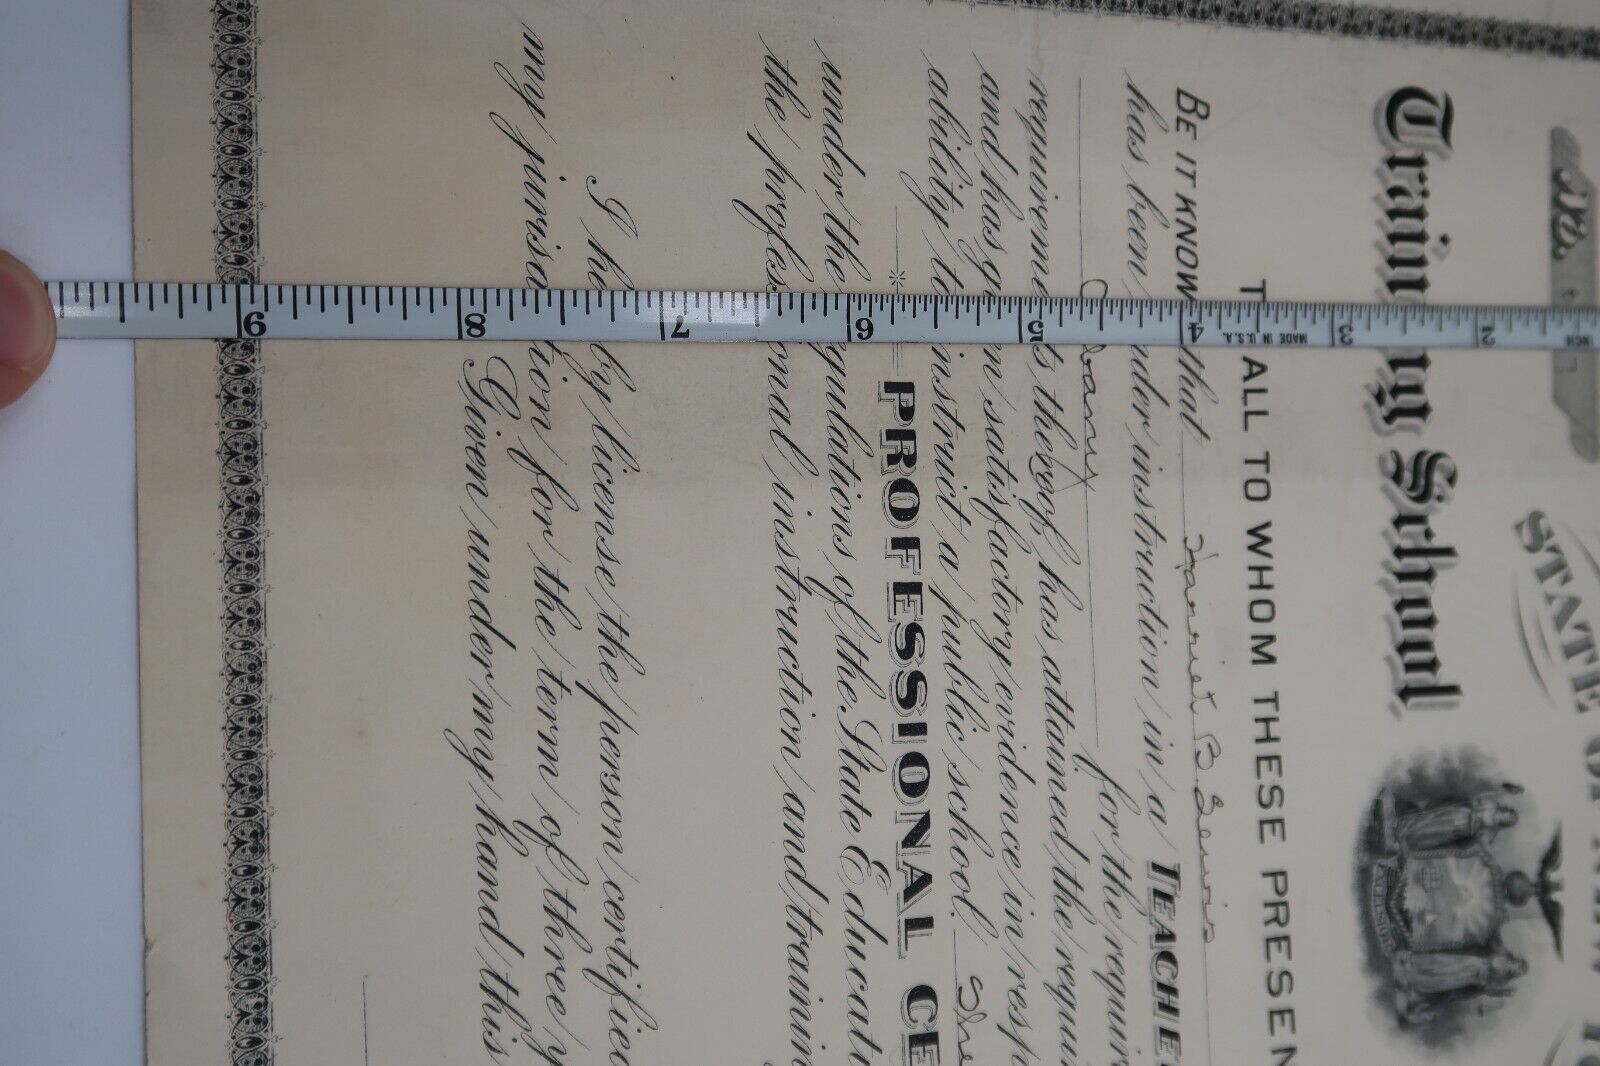 No.
STATE OF NEW YO
Training School
TO ALL TO WHOM THESE PRESEN
BE IT KNOWN that Harriet B. Lewis
has been under instruction in a TEACHE
for the requir
requirements thereof, has attained the requi
and has given satisfactory evidence in resp
ability to instruct a public school. She
PROFESSIONAL CE
under the regulations of the State Educati
the professional instruction and trainin
I hereby license the person certified
my jurisdiction for the term of three y
Given under my hand this
EXCELSIOR
9 8 7 6 5 4 3 2
MADE IN U.S.A.